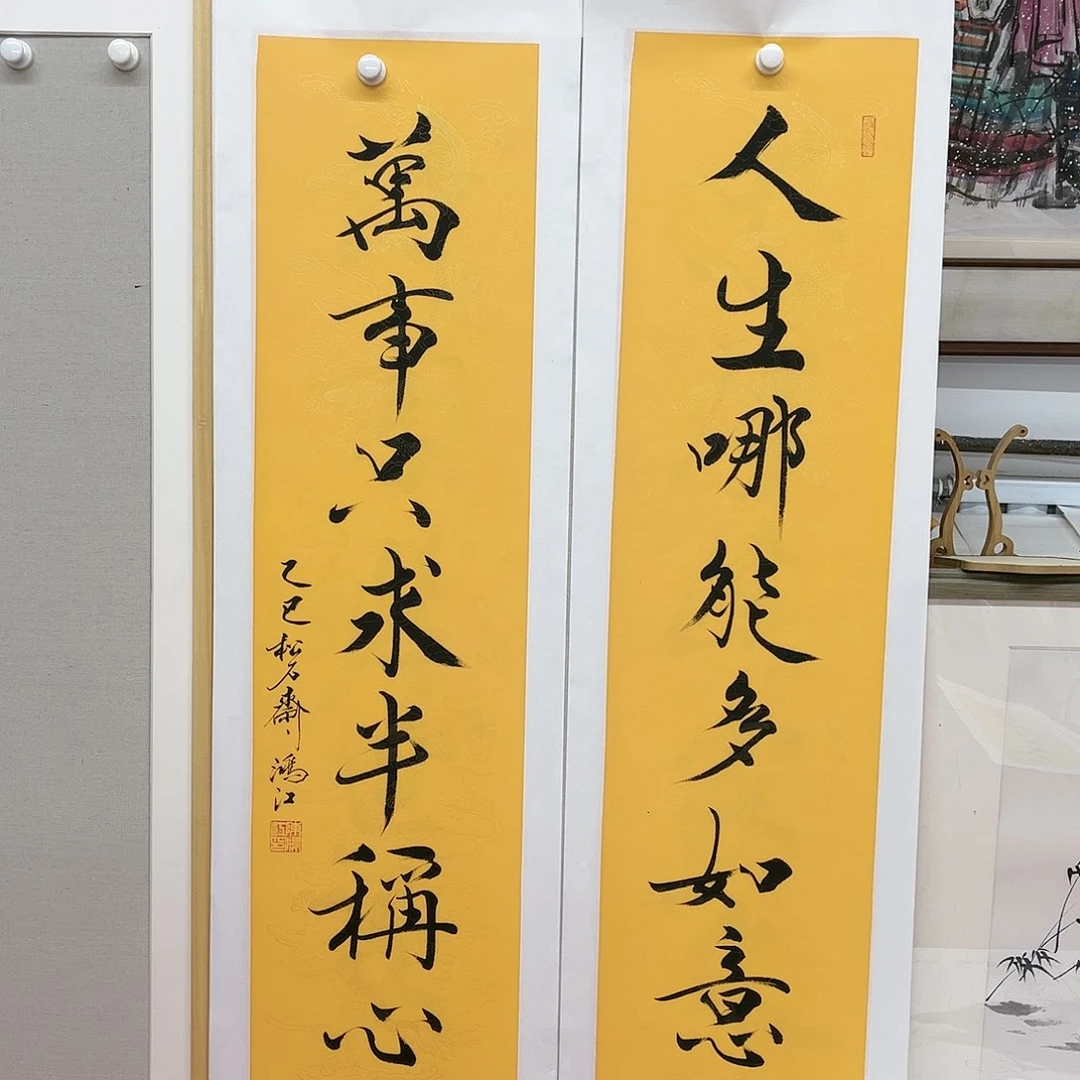 人生哪能多如意
萬事只求半稱心
乙巳松石齋鴻江